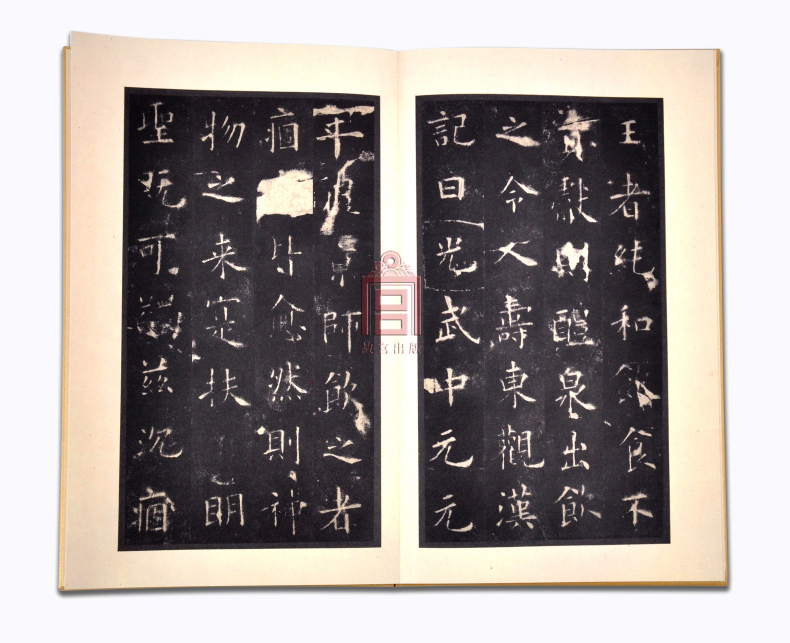 王者純和飲食不
貢獻則醴泉出飲
之令人壽東觀漢
記曰光武中元元
年醴泉出京師飲之者
痼皆愈然則神
物之来寔扶明
聖既可蠲茲沉痼
故宫出版